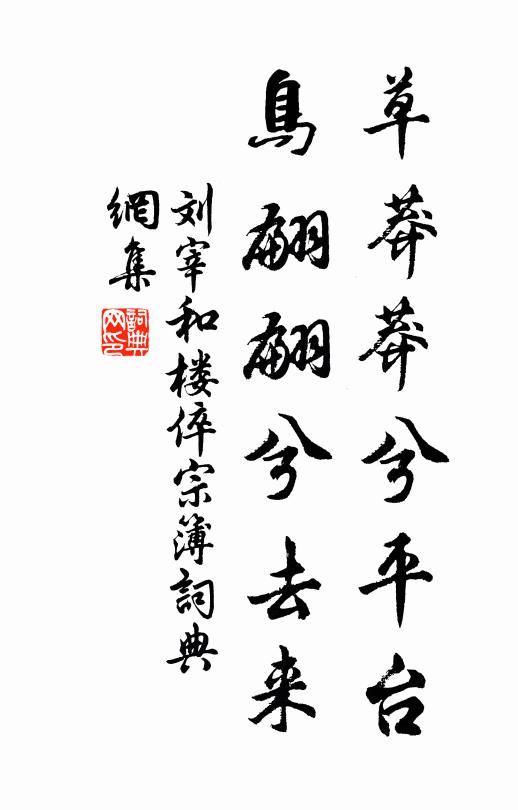 草莽莽兮平台
鳥翩翩兮去来
刘宰和楼倅宗簿詞典
網集
詞典
网印